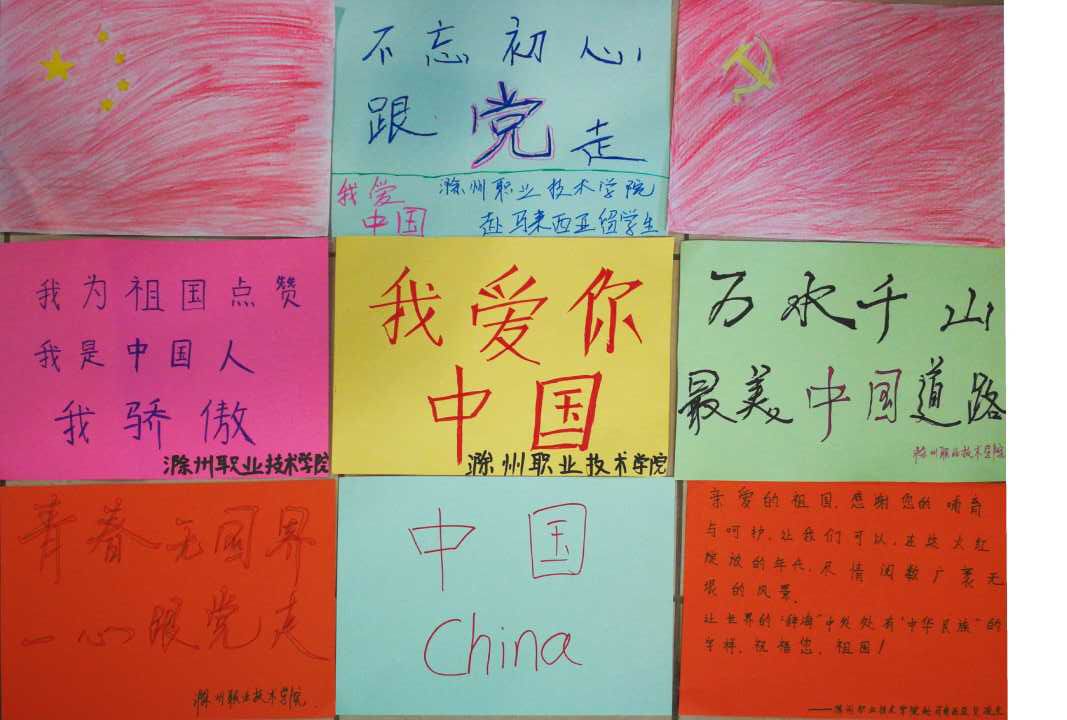 不忘初心
跟党走
我爱
中国
滁州职业技术学院
赴马来西亚留学生
我为祖国点赞
我是中国人
我骄傲
滁州职业技术学院
我爱你
中国
滁州职业技术学院
万水千山
最美中国道路
滁州职业技术学院
青春无国界
一心跟党走
滁州职业技术学院
中国
China
亲爱的祖国,感谢您的哺育
与呵护,让我们可以,在这火红
绽放的年代,尽情阅数广袤无
垠的风景、
让世界的“辞海”中处处有“中华民族”的
字样,祝福您,祖国!
——滁州职业技术学院赴马来西亚